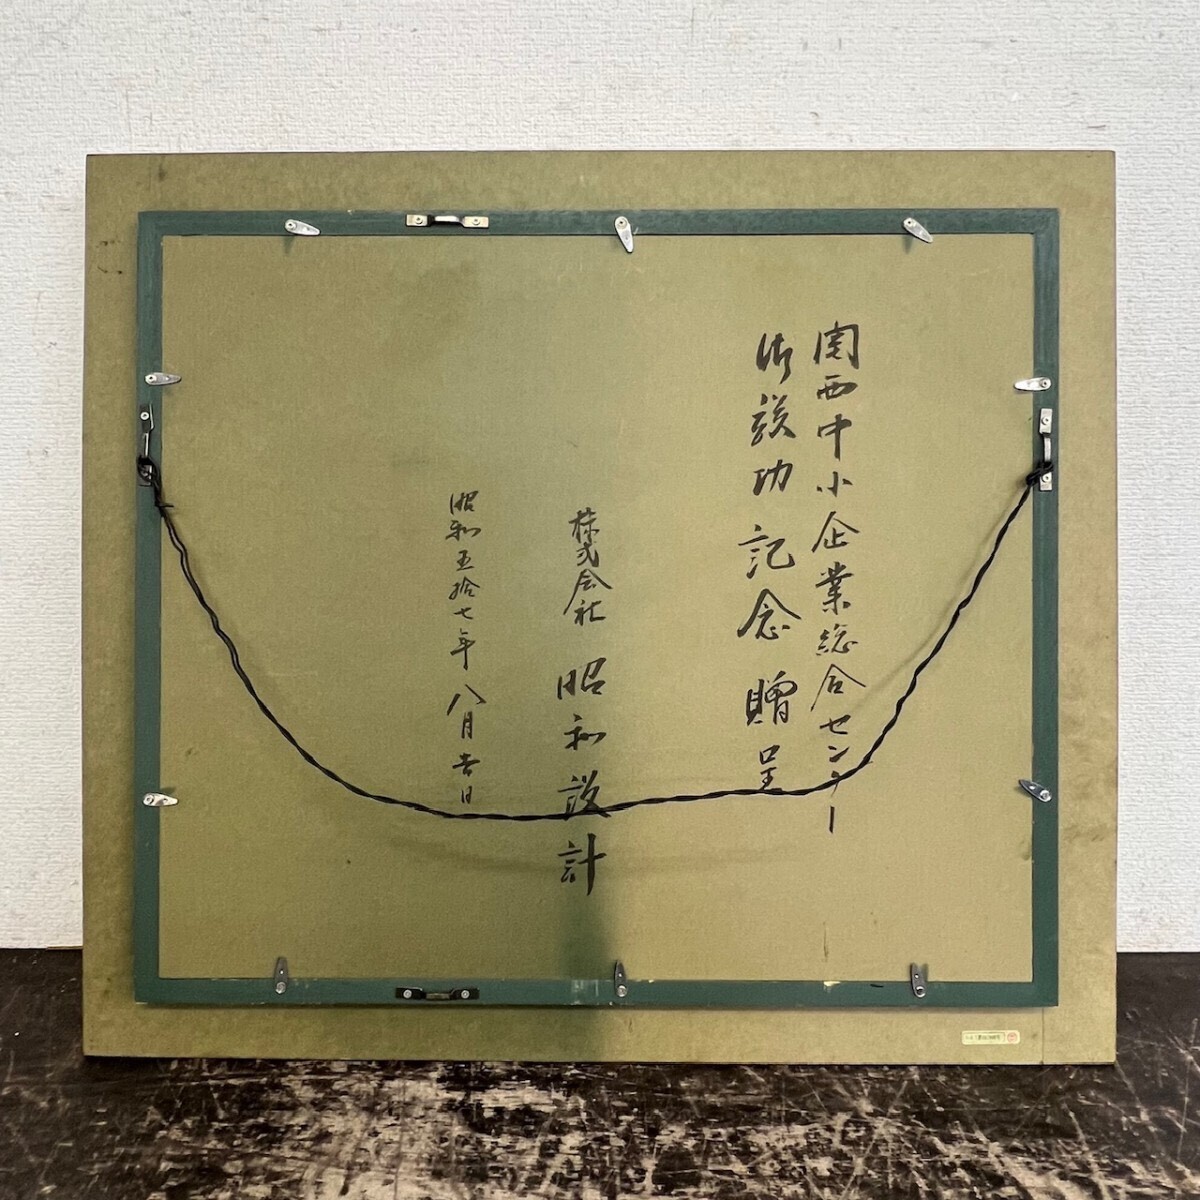 関西中小企業総合センター
御竣功記念贈呈
株式会社 昭和設計
昭和五拾七年八月吉日